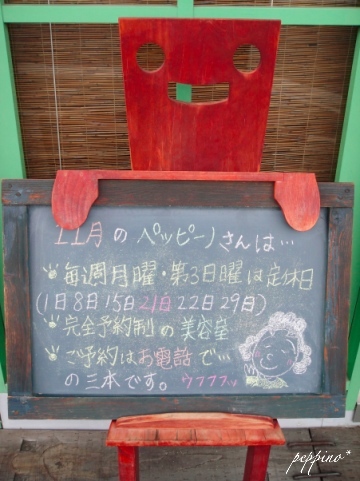 11月のペッピーノさんは…
毎週月曜・第3日曜は定休日
(1日8日15日21日22日29日)
完全予約制の美容室
ご予約はお電話で…
の三本です。ウフフフッ
peppino*